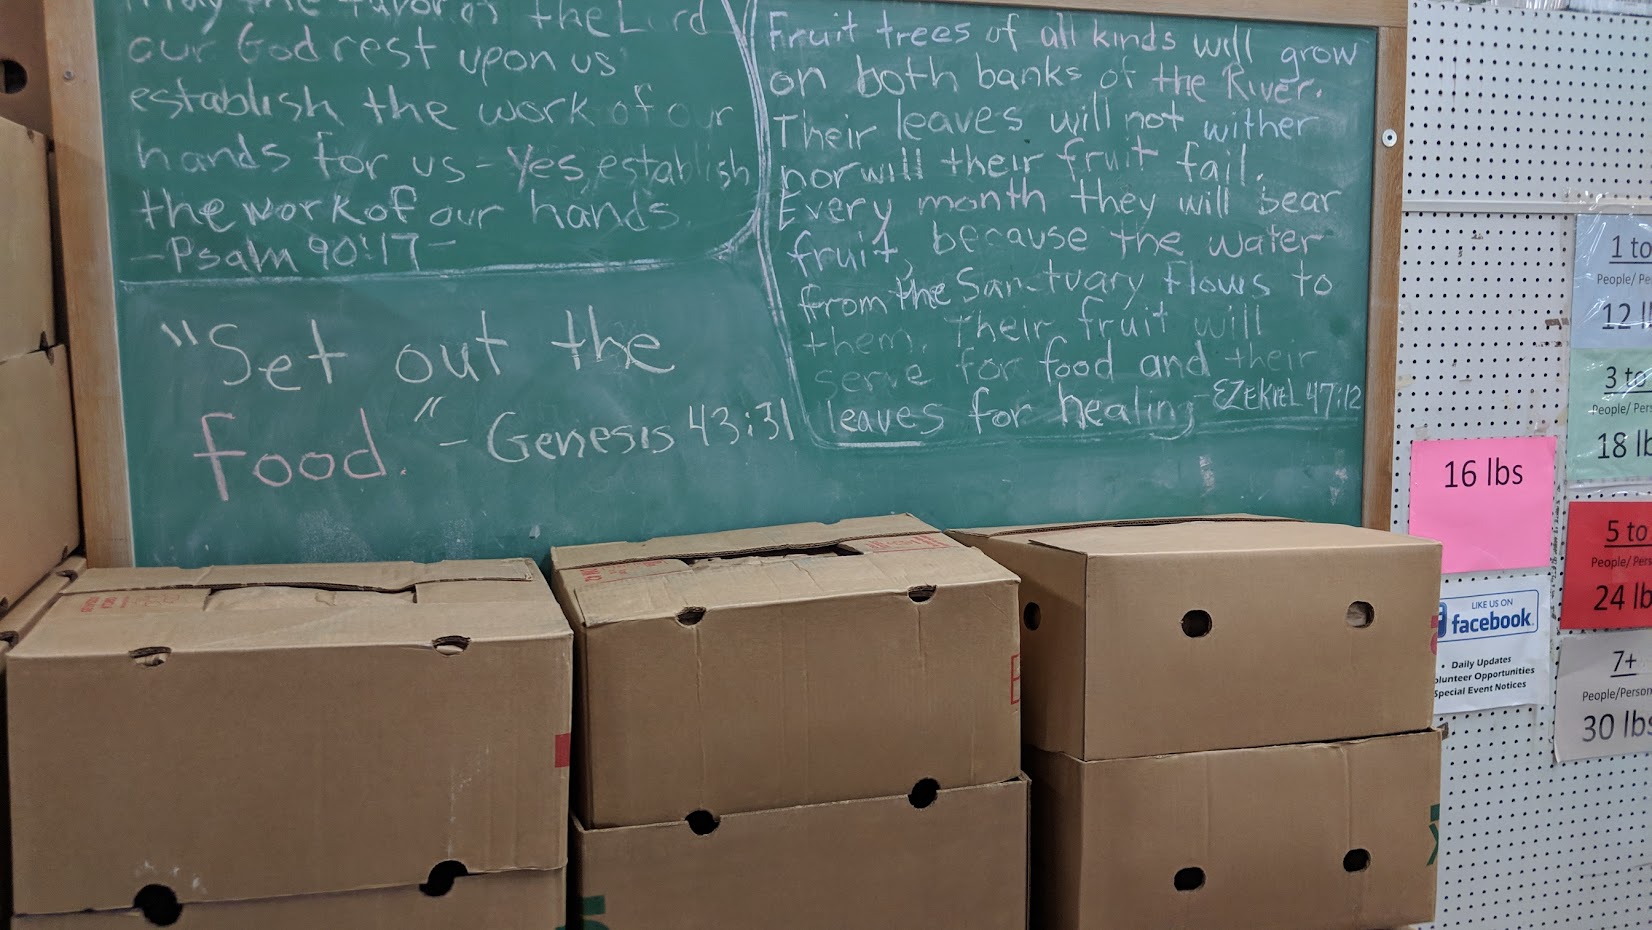 may the favor of the Lord
our God rest upon us
establish the work of our
hands for us - Yes, establish
the work of our hands.
- Psalm 90:17 -
"Set out the
food." - Genesis 43:31
Fruit trees of all kinds will grow
on both banks of the River.
Their leaves will not wither
nor will their fruit fail.
Every month they will bear
fruit, because the water
from the Sanctuary flows to
them. Their fruit will
serve for food and their
leaves for healing - EZEKIEL 47:12
16 lbs
LIKE US ON
facebook
• Daily Updates
olunteer Opportunities
Special Event Notices
1 to
People/ Pe
12 l
3 to
People/ Pers
18 lb
5 to
People/ Pers
24 lb
7+
People/Person
30 lbs